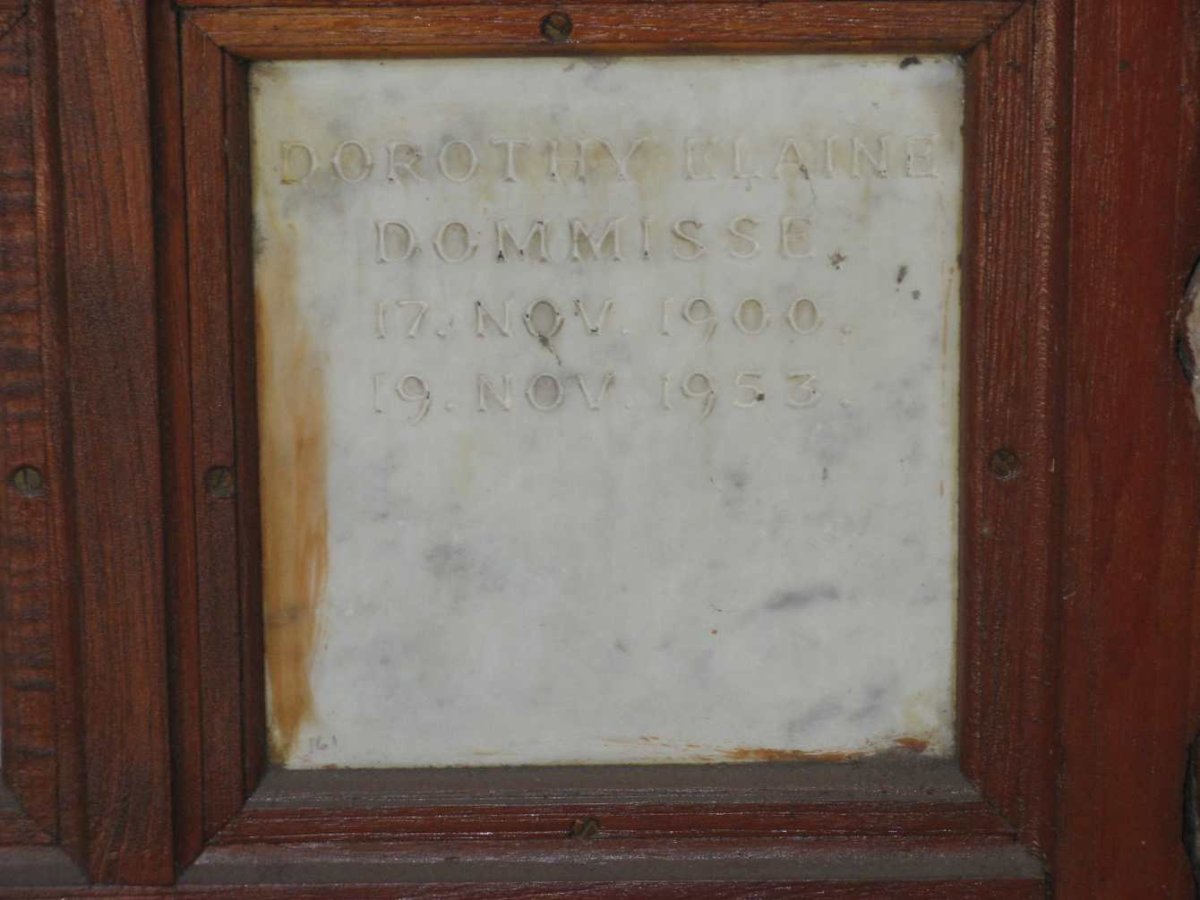 DOROTHY ELAINE
DOMMISSE.
17. NOV. 1900.
19. NOV. 1953.